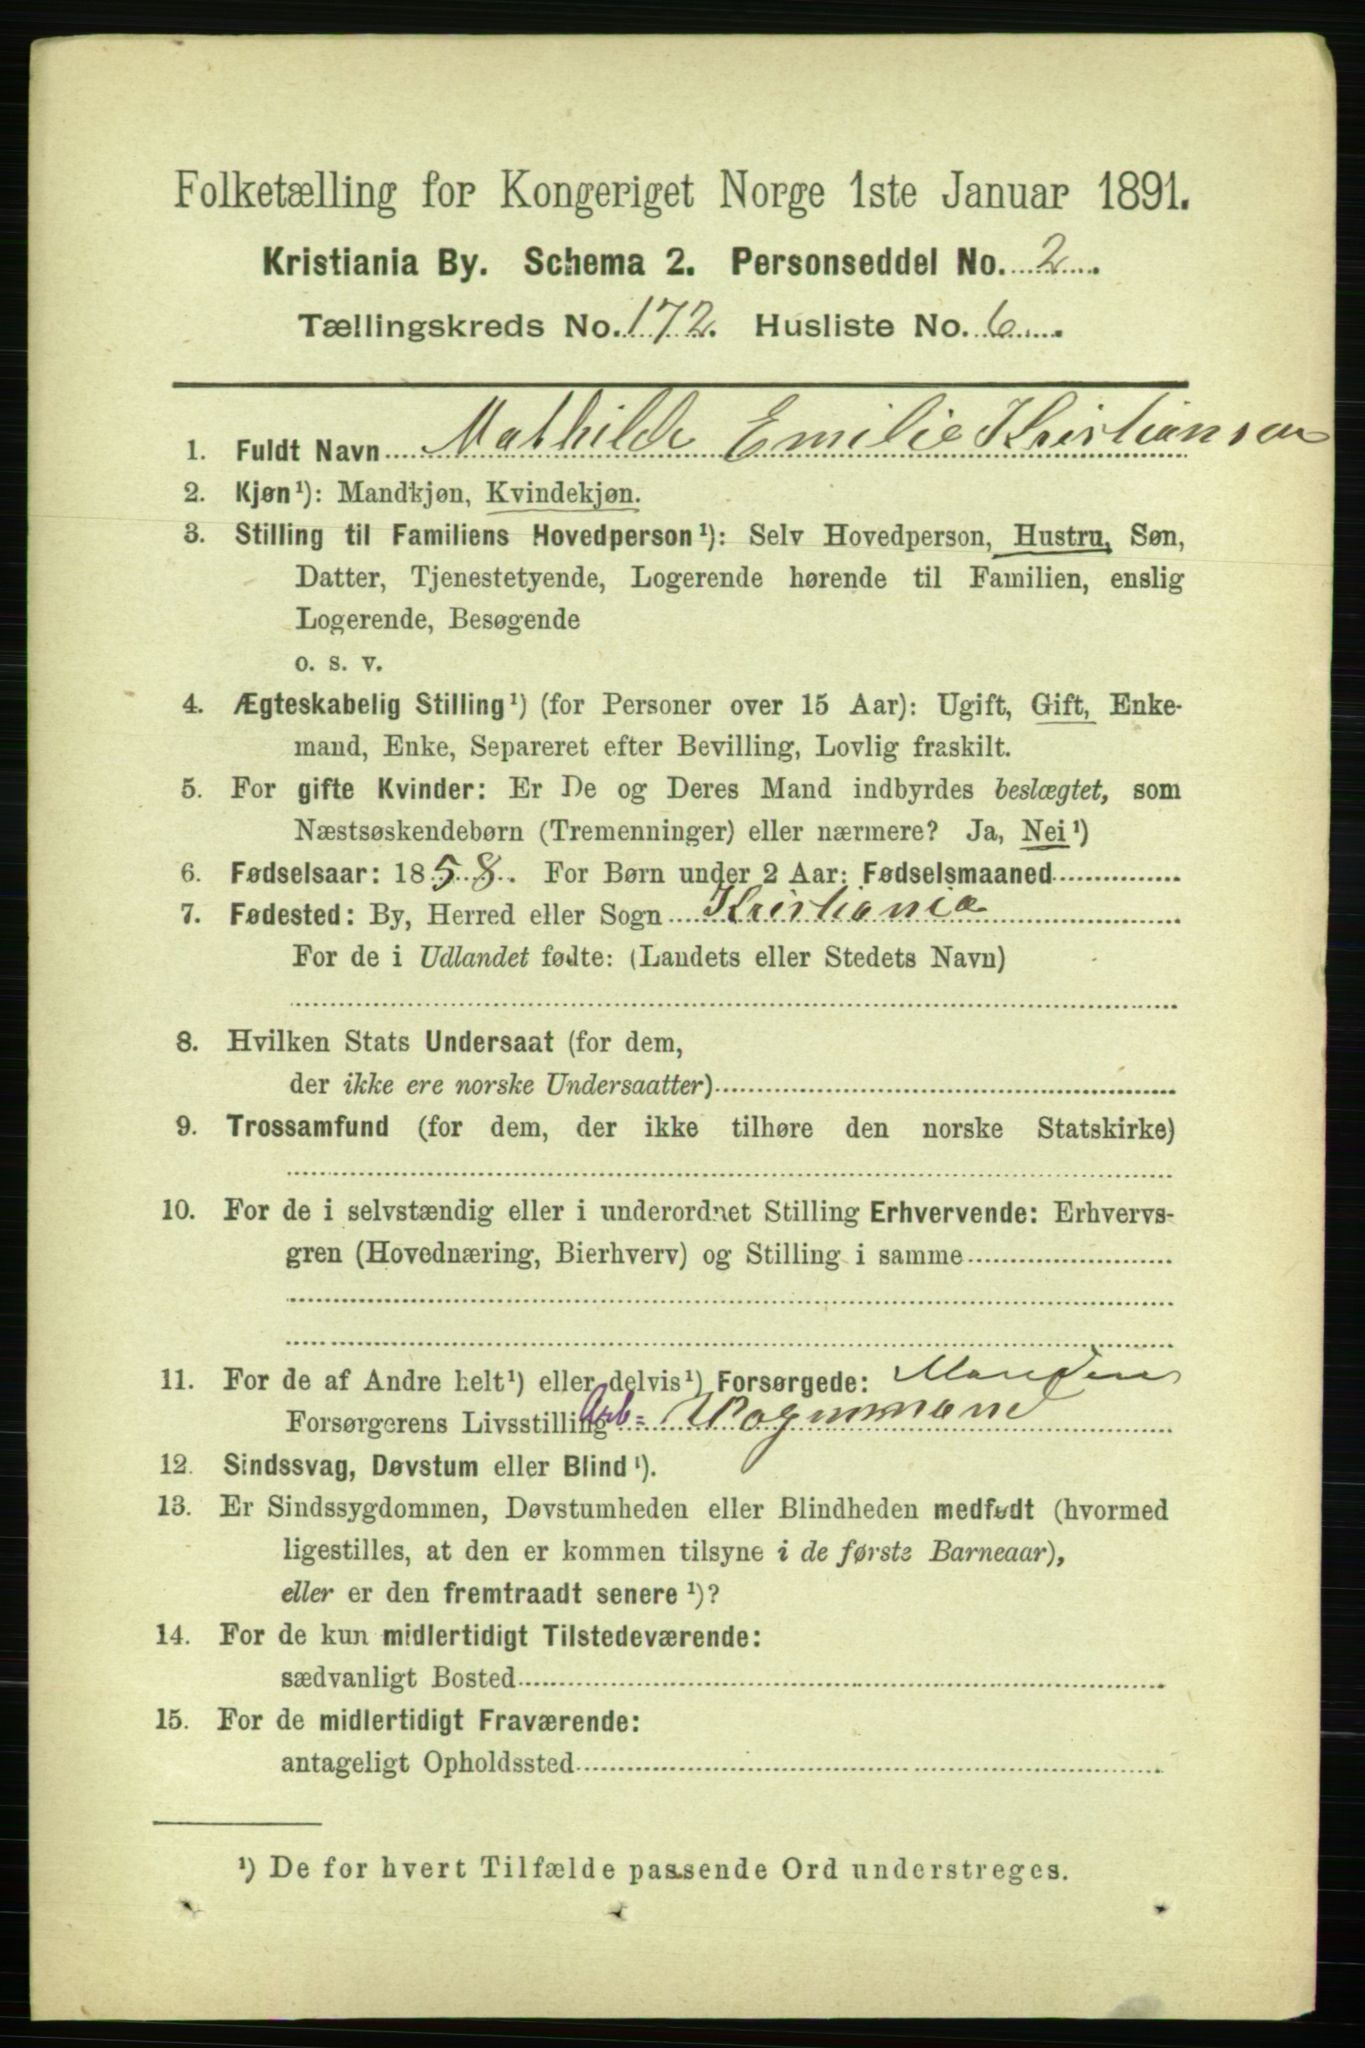 Folketælling for Kongeriget Norge 1ste Januar 1891.
Kristiania By. Schema 2. Personseddel No. 2.
Tællingskreds No. 172. Husliste No. 6.
1. Fuldt Navn Mathilde Emilie Kristiansen
2. Kjøn¹): Mandkjøn, Kvindekjøn.
3. Stilling til Familiens Hovedperson¹): Selv Hovedperson, Hustru, Søn,
Datter, Tjenestetyende, Logerende hørende til Familien, enslig
Logerende, Besøgende
o. s. v.
4. Ægteskabelig Stilling¹) (for Personer over 15 Aar): Ugift, Gift, Enke-
mand, Enke, Separeret efter Bevilling, Lovlig fraskilt.
5. For gifte Kvinder: Er De og Deres Mand indbyrdes beslægtet, som
Næstsøskendebørn (Tremenninger) eller nærmere? Ja, Nei¹)
6. Fødselsaar: 1858. For Børn under 2 Aar: Fødselsmaaned
7. Fødested: By, Herred eller Sogn Kristiania
For de i Udlandet fødte: (Landets eller Stedets Navn)
8. Hvilken Stats Undersaat (for dem,
der ikke ere norske Undersaatter)
9. Trossamfund (for dem, der ikke tilhøre den norske Statskirke)
10. For de i selvstændig eller i underordnet Stilling Erhvervende: Erhvervs-
gren (Hovednæring, Bierhverv) og Stilling i samme
11. For de af Andre helt¹) eller delvis¹) Forsørgede: Manden
Forsørgerens Livsstilling Arb= Vognmand
12. Sindssvag, Døvstum eller Blind¹).
13. Er Sindssygdommen, Døvstumheden eller Blindheden medfødt (hvormed
ligestilles, at den er kommen tilsyne i de første Barneaar),
eller er den fremtraadt senere¹)?
14. For de kun midlertidigt Tilstedeværende:
sædvanligt Bosted
15. For de midlertidigt Fraværende:
antageligt Opholdssted
¹) De for hvert Tilfælde passende Ord understreges.